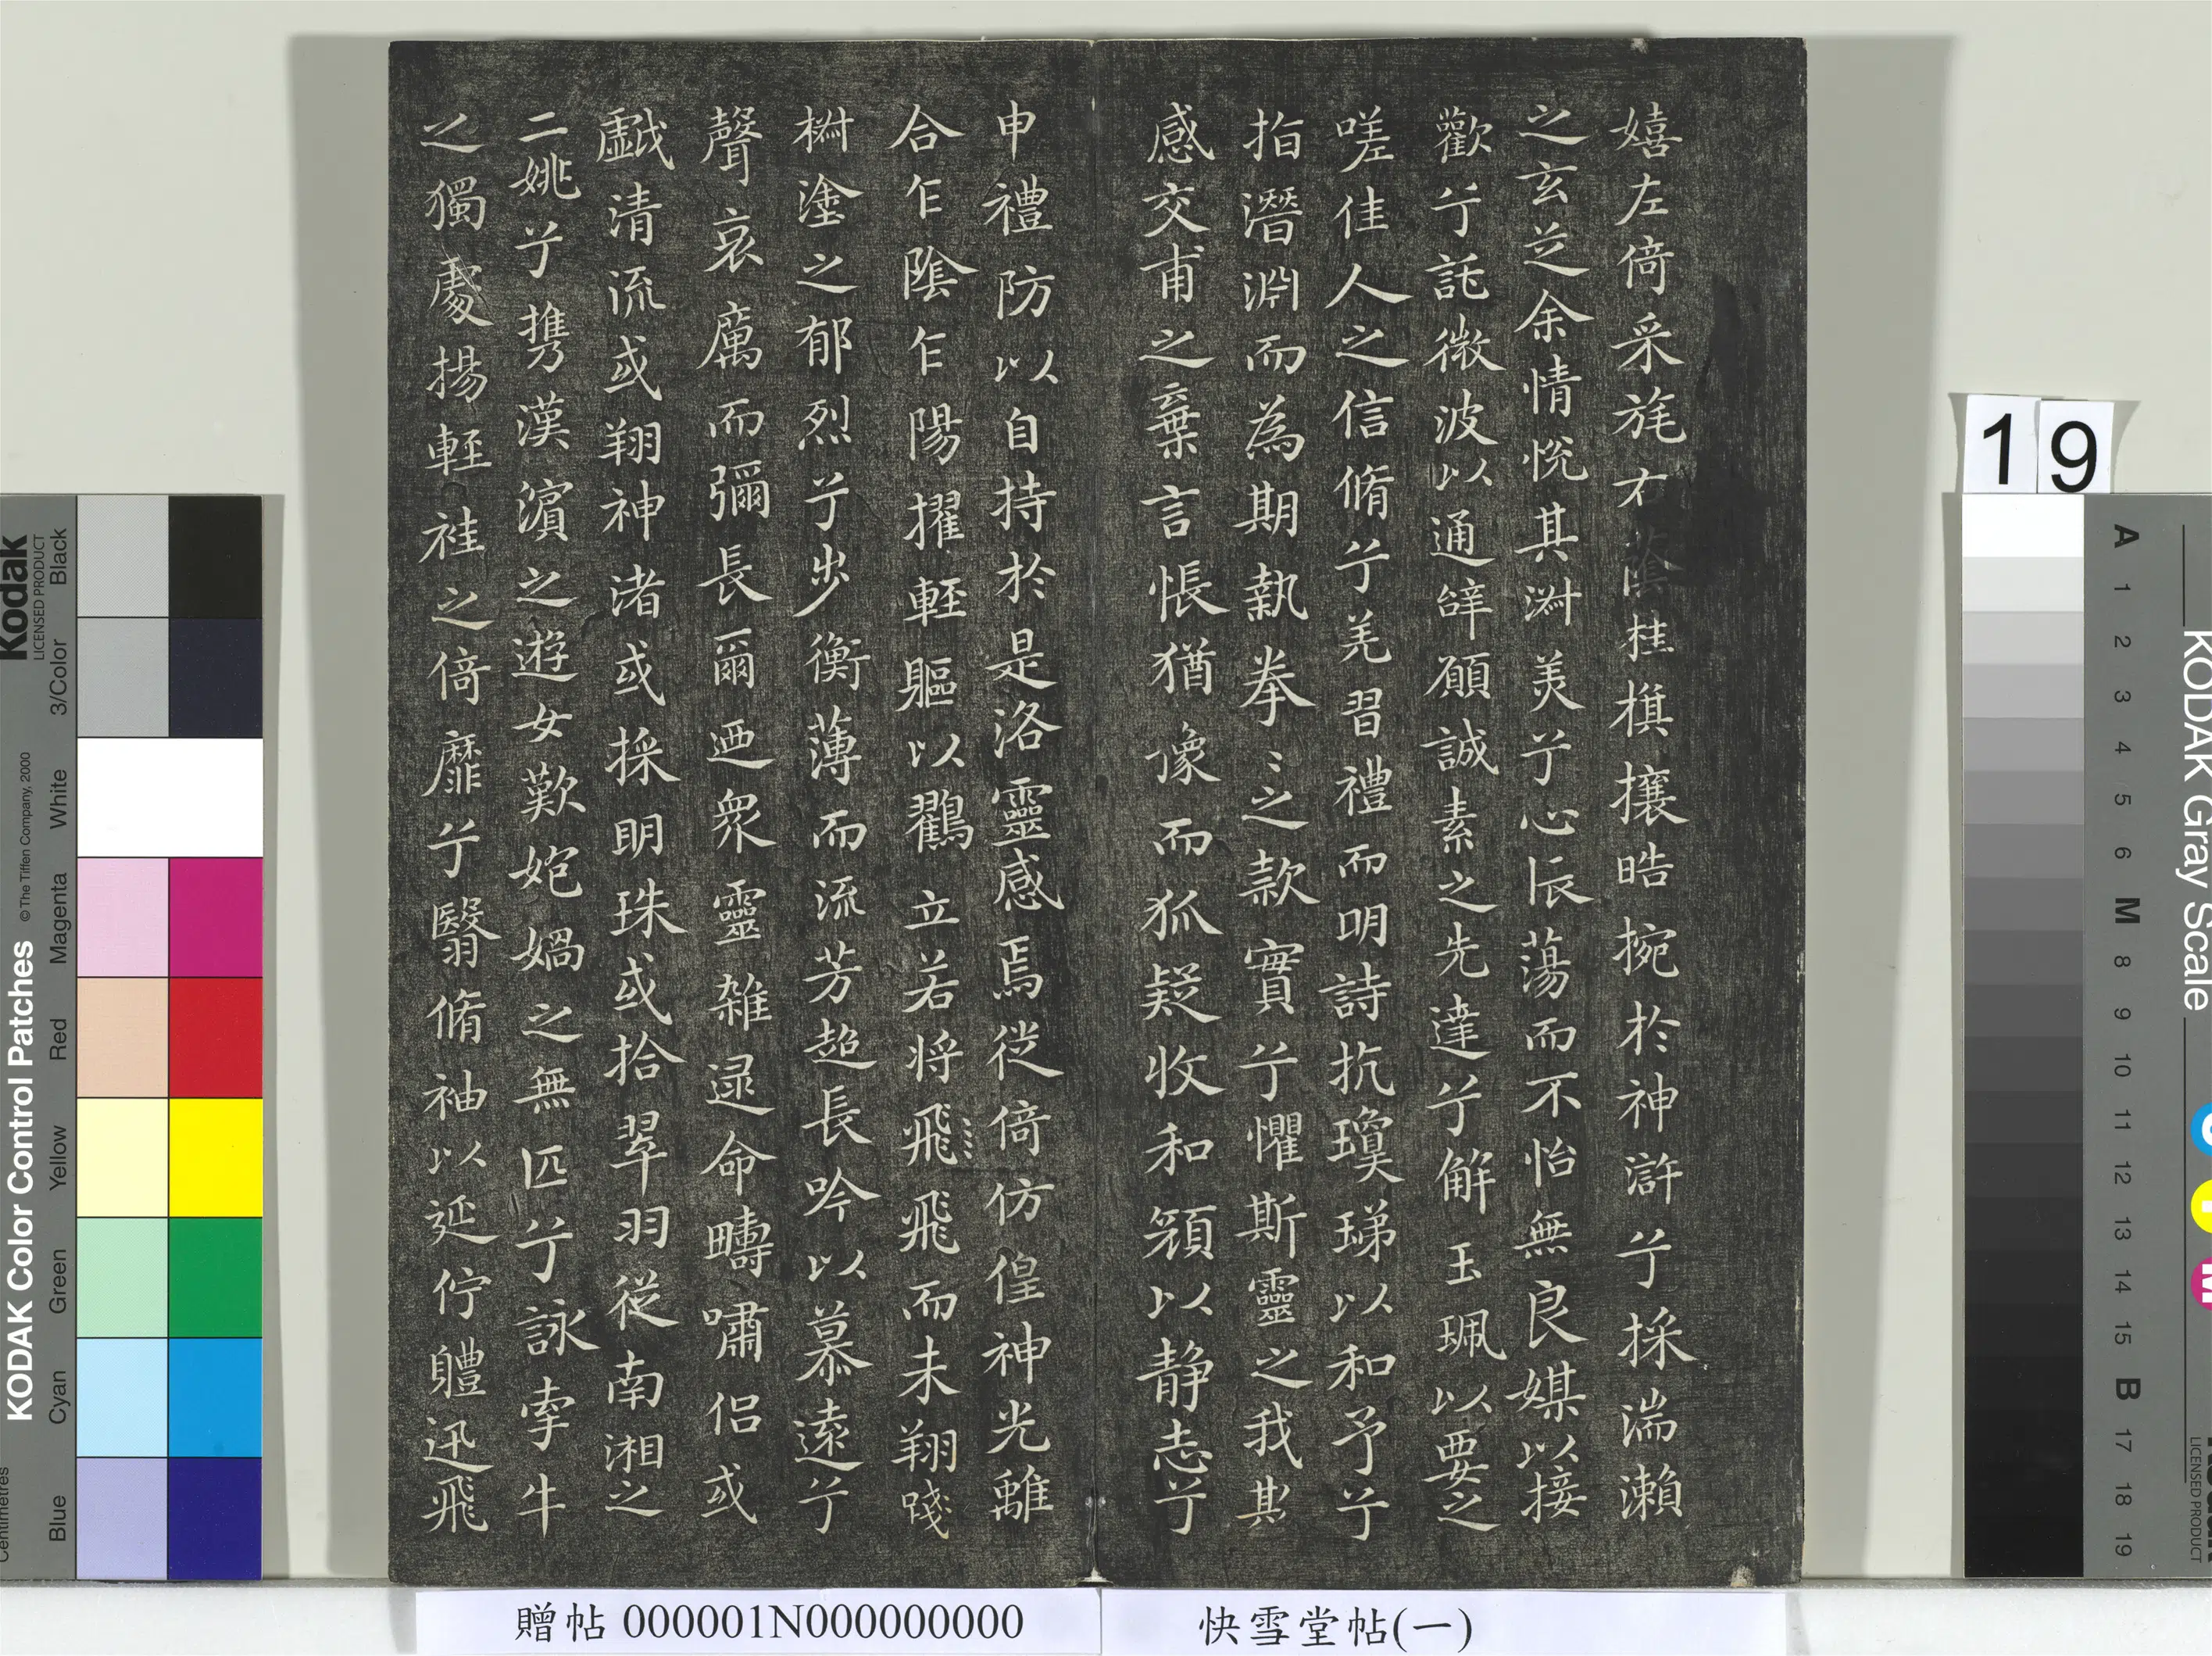 嬉左倚采旄右蔭桂棋攘皓捥於神滸兮採湍瀨
之玄芝余情悅其淑美兮心㫳蕩而不怡無良媒以接
歡兮託微波以通辝願誠素之先達兮解玉珮以要之
嗟佳人之信脩兮羌習禮而明詩抗瓊珶以和予兮
指潛淵而為期執拳〻之款實兮懼斯靈之我欺
感交甫之棄言悵猶豫而狐疑收和顏以静志兮
申禮防以自持於是洛靈感焉從倚仿偟神光離
合乍陰乍陽擢輕軀以鸛立若将飛飛而未翔踐
椒塗之郁烈兮步衡薄而流芳超長吟以慕遠兮
聲哀厲而彌長爾迺衆靈雜遝命疇嘯侶或
戲清流或翔神渚或採明珠或拾翠羽從南湘之
二姚兮携漢濱之遊女歎媧之無匹兮詠牽牛
之獨處揚輕袿之倚靡兮翳脩袖以延佇軆迅飛
贈帖 000001N000000000
快雪堂帖(一)
19
KODAK Color Control Patches
© The Tiffen Company, 2000
Kodak
LICENSED PRODUCT
Blue Cyan Green Yellow Red Magenta White 3/Color Black
Centimetres
KODAK Gray Scale
A 1 2 3 4 5 6 M 8 9 10 11 12 13 14 15 B 17 18 19